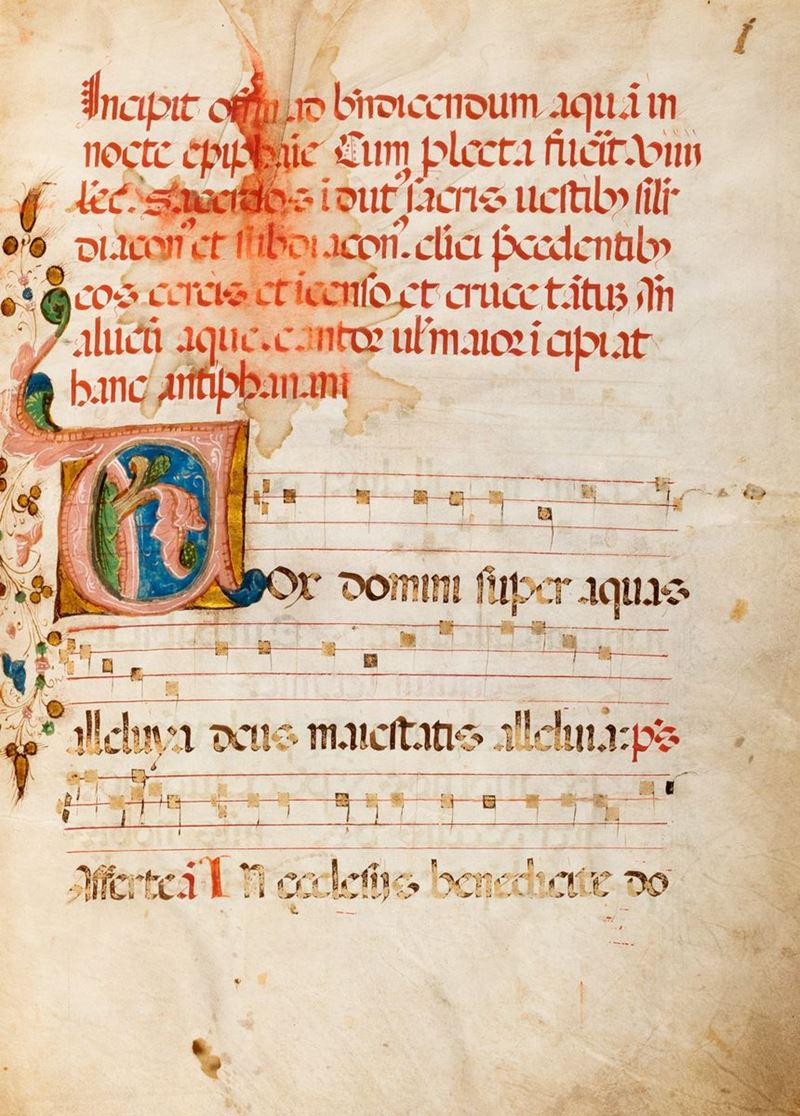 i
Incipit offm ad bn̄dicendum aquā in
nocte epiphaīe Cum plecta fueīt. viiii
lec̄. Sacerdos īdut᾽ sacris uestibꝫ sīlr
diacon᾽ et subdiacon᾽. cl̄ici p̄cedentibꝫ
cos cereis et icenso et cruce tātuꝫ
aluеū aque. cantor ul᾽ maior īcipiat
hanc antiphanam
Vox domini super aquas
alleluya deus maiestatis alleluia: p̄s
Afferte ā In ecclesijs benedicite do